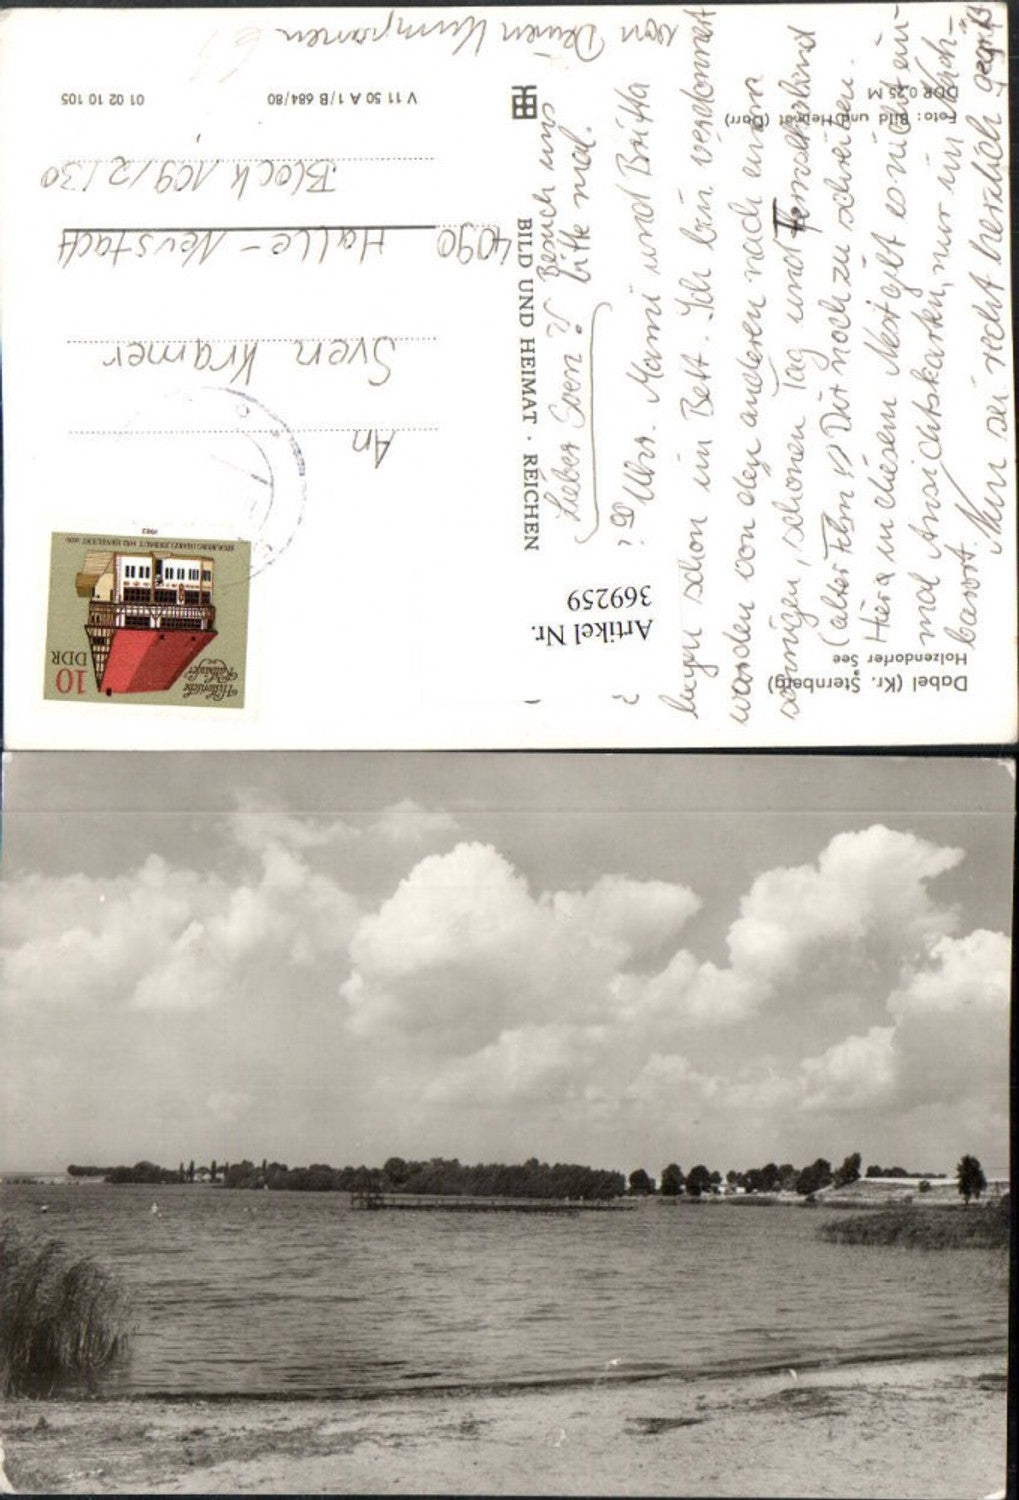 Dabel (Kr. Sternberg)
Holzendorfer See
Foto: Bild und Heimat (Darr)
DDR 0,25 M
Lieber Sven!
Besuch uns
bitte mal.
? 20 Uhr. Mami und Britta
liegen schon im Bett. Ich bin verdonnert
worden von den anderen nach einem
sonnigen, schönen Tag und Fernsehabend
(alter Film!) Dir noch zu schreiben.
Hier in diesem Nest gibt es nicht ein-
mal Ansichtskarten, nur im Nach-
barort.
Nun sei recht herzlich gegrüßt
von Deinen Kumpanen
BILD UND HEIMAT · REICHEN
V 11 50 A 1/B 684/80
01 02 10 105
An
Sven Kramer
4090 Halle-Neustadt
Block 109/2/30
Historische Rathäuser
10
DDR
1982
Artikel Nr.
369259